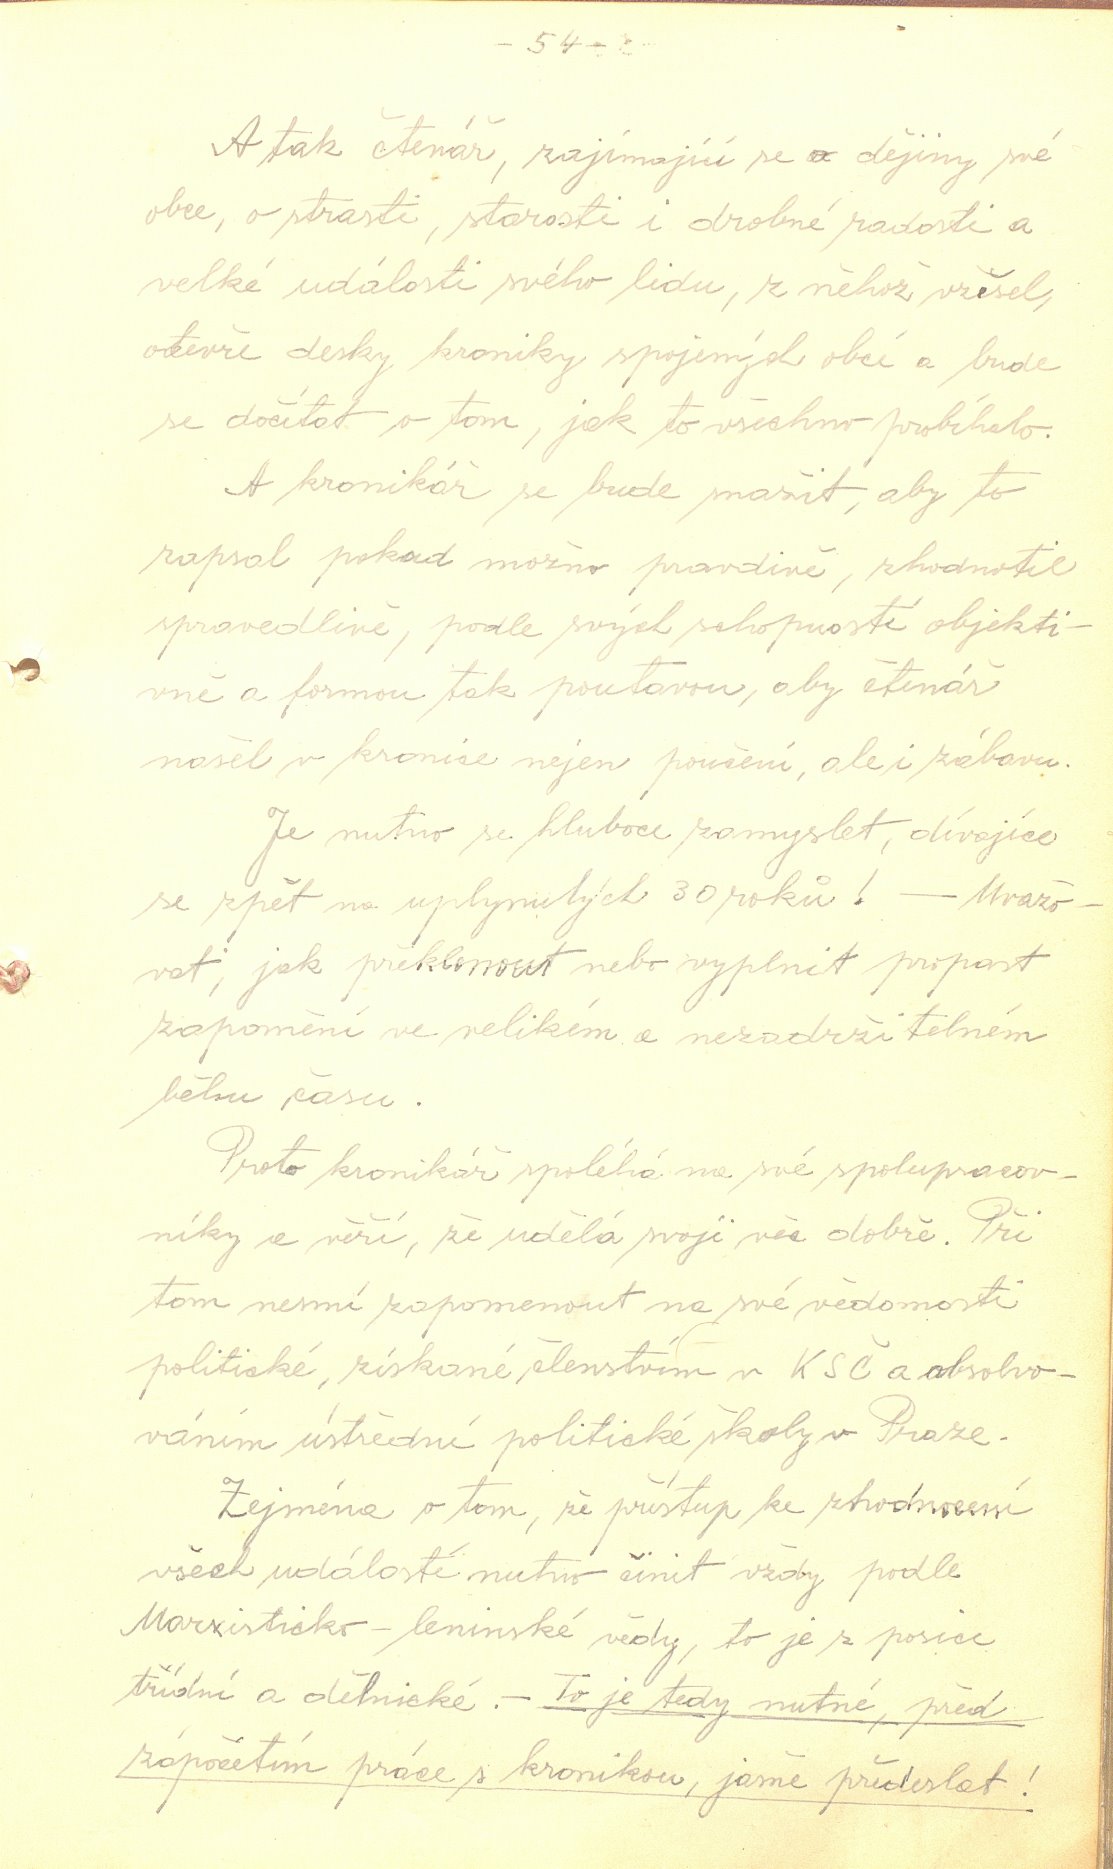 - 54 -
A tak čtenář, zajímající se o dějiny své
obce, o strasti, starosti i drobné radosti a
velké události svého lidu, z něhož vzešel,
otevře desky kroniky spojených obcí a bude
se dočítat o tom, jak to všechno probíhalo.
A kronikář se bude snažit, aby to
zapsal pokud možno pravdivě, zhodnotil
spravedlivě, podle svých schopností objekti-
vně a formou tak poutavou, aby čtenář
našel v kronice nejen poučení, ale i zábavu.
Je nutno se hluboce zamyslet, dívajíce
se zpět na uplynulých 30 roků! — Uvažo-
vati, jak překlenout nebo vyplnit propast
zapomění ve velikém a nezadržitelném
běhu času.
Proto kronikář spoléhá na své spolupracov-
níky a věří, že udělá svoji věc dobře. Při
tom nesmí zapomenout na své vědomosti
politické, získané členstvím v KSČ a absolvo-
váním ústřední politické školy v Praze.
Zejména o tom, že přístup ke zhodnocení
všech událostí nutno činit vždy podle
Marxisticko - leninské vědy, to je z posice
třídní a dělnické. - To je tedy nutné, před
započetím práce s kronikou, jasně předeslat!